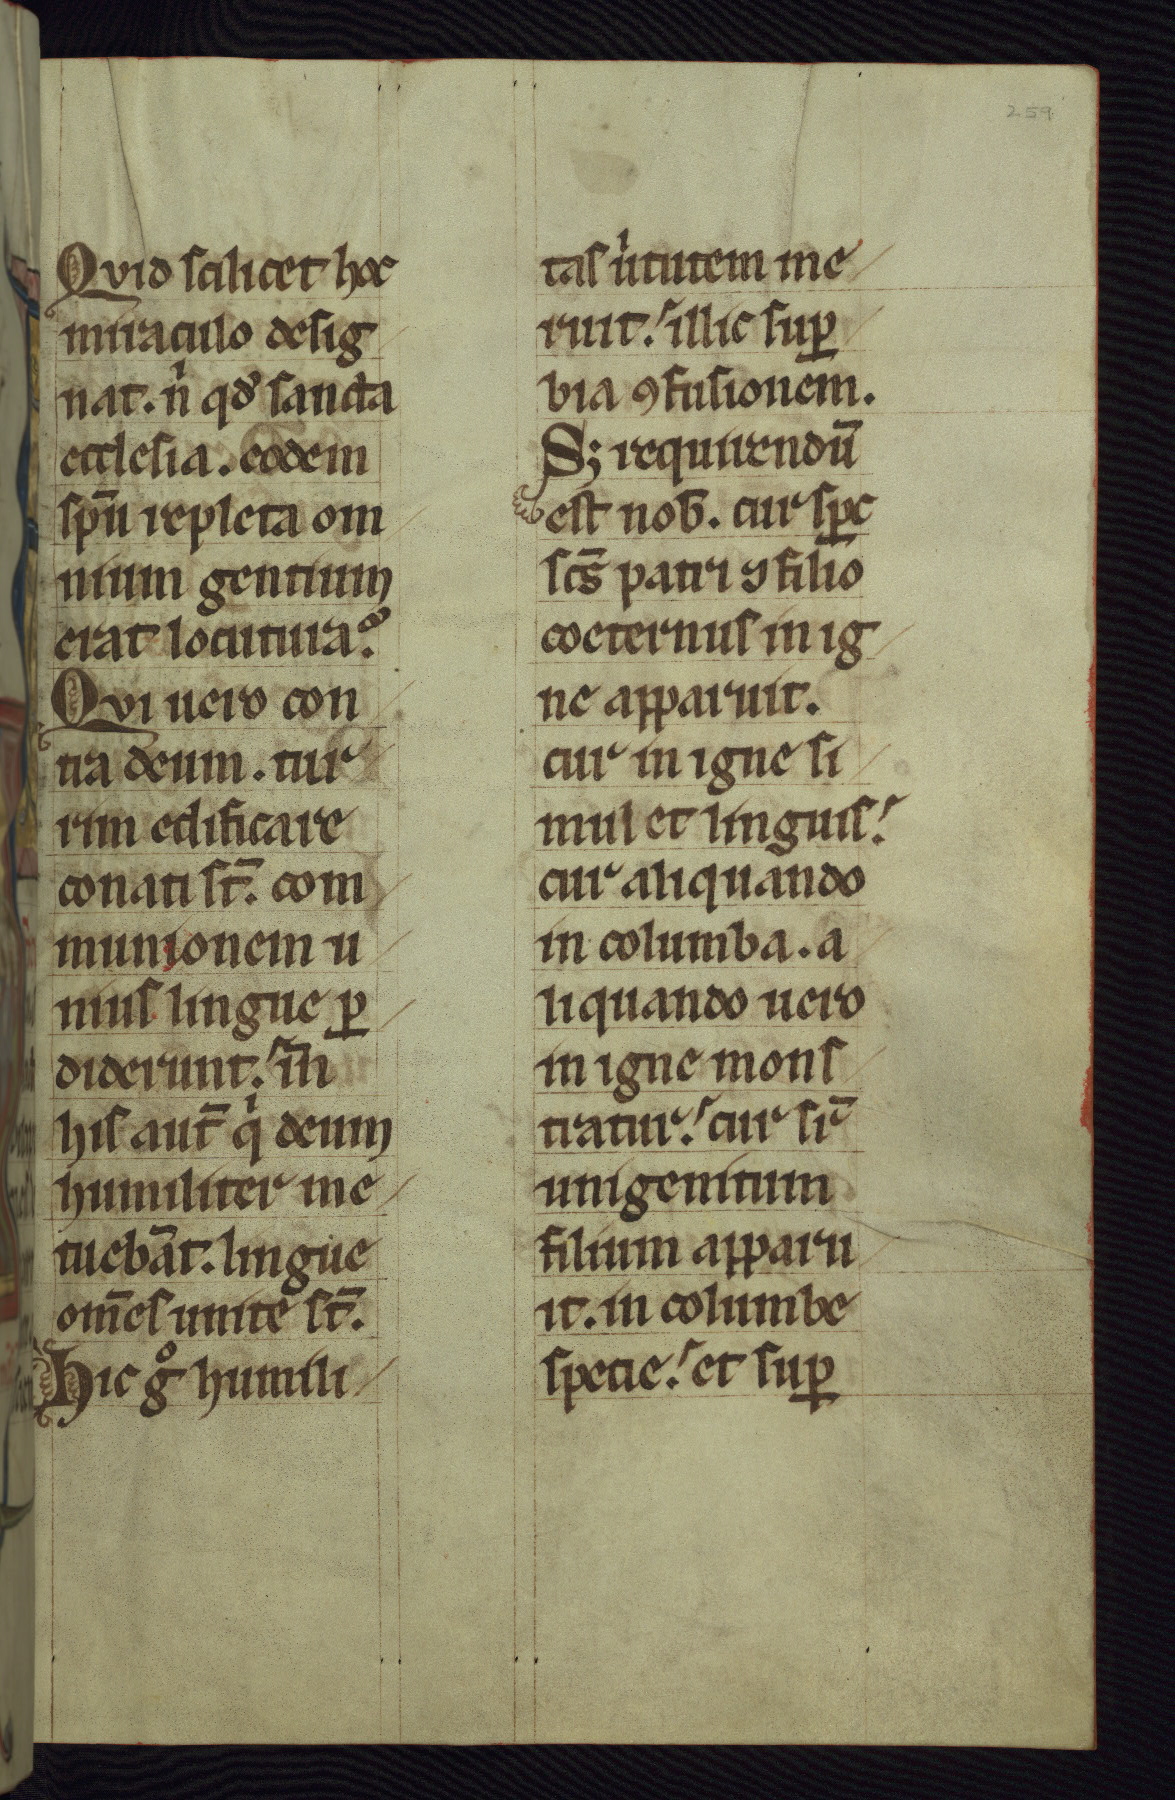 259
Quid scilicet hoc
miraculo desig
nat. nͥ qđ sancta
ecclesia. eodem
sp̅u repleta om
nium gentium
erat locutura?
Qui uero con
tra deum. tur
rim edificare
conati st̅. com
munionem u
nius lingue ꝑ
diderunt. in̅
his aut̅ qͥ deum
humiliter me
tueba̅t. lingue
om̅es unite st̅.
Hic gͦ humili
tas uͥtutem me
ruit. illic suꝑ
bia ꝯfusionem.
Sꝫ requirendu̅
est nob̅. cur sp̅c
sc̅s patri ꝯ filio
coeternus in ig
ne apparuit.
cur in igne si
mul et linguis.
cur aliquando
in columba. a
liquando uero
in igne mons
tratur. cur sr̅
unigenitum
filium apparu
it. in columbe
specie. et suꝑ